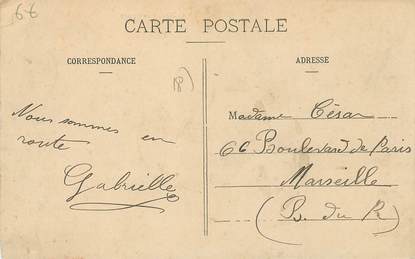 6€
CARTE POSTALE
CORRESPONDANCE
ADRESSE
18)
Nous sommes en
route
Gabrielle
Madame César
66 Boulevard de Paris
Marseille
(B. du R)